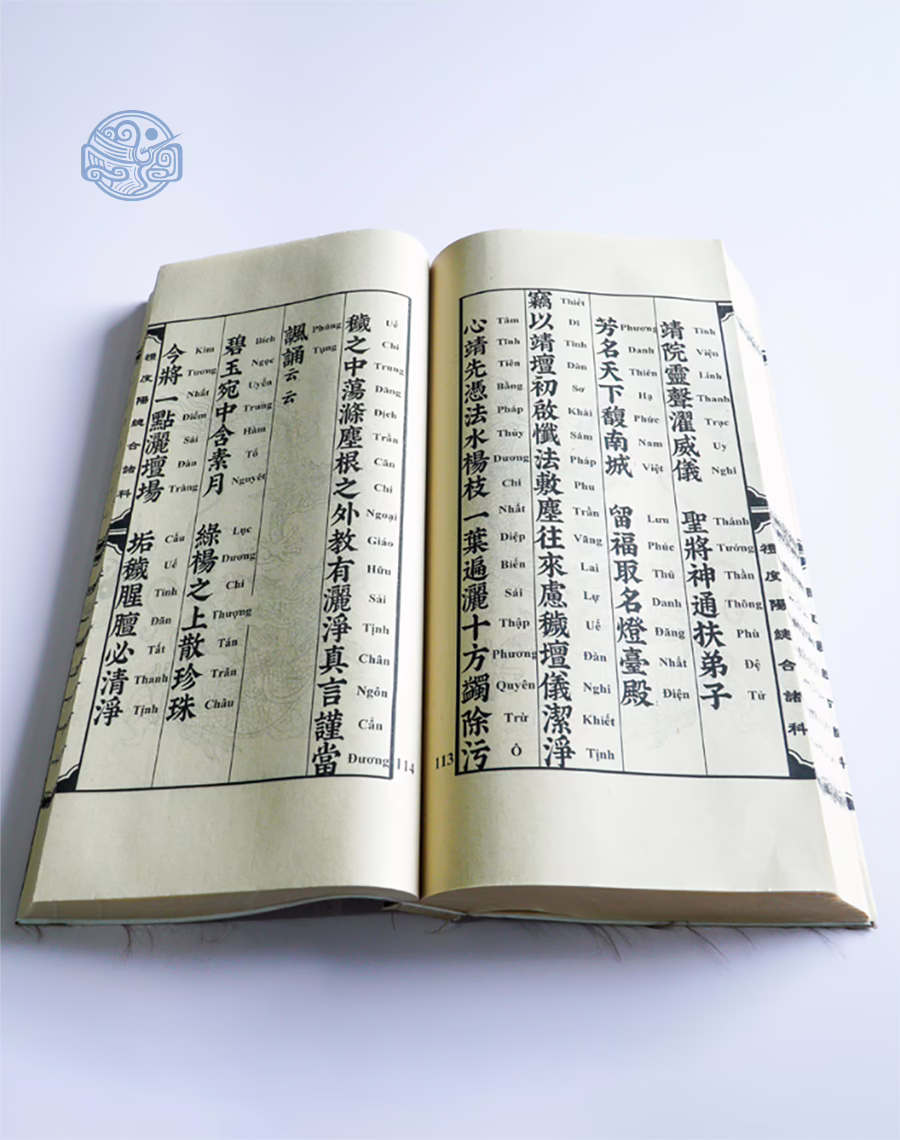 禮度陽總合諸科
靖院靈聲濯威儀 聖將神通扶弟子
Tĩnh Viện Linh Thanh Trạc Uy Nghi Thánh Tướng Thần Thông Phù Đệ Tử
芳名天下馥南城 留福取名燈臺殿
Phương Danh Thiên Hạ Phức Nam Việt Lưu Phúc Thủ Danh Đăng Nhất Điện
竊以靖壇初啟懺法敷塵往來慮穢壇儀潔淨
Thiết Dĩ Tĩnh Đàn Sơ Khải Sám Pháp Phu Trần Vãng Lai Lự Uế Đàn Nghi Khiết Tịnh
心靖先憑法水楊枝一葉遍灑十方蠲除污
Tâm Tĩnh Tiên Bằng Pháp Thủy Dương Chi Nhất Diệp Biến Sái Thập Phương Quyên Trừ Ô
113
穢之中蕩滌塵根之外教有灑淨真言謹當
Uế Chi Trung Đãng Địch Trần Căn Chi Ngoại Giáo Hữu Sái Tịnh Chân Ngôn Cẩn Đương
諷誦云云
Phúng Tụng
碧玉宛中含素月 綠楊之上散珍珠
Bích Ngọc Uyển Trung Hàm Tố Nguyệt Lục Dương Chi Thượng Tán Trân Châu
今將一點灑壇場 垢穢腥膻必清淨
Kim Tương Nhất Điểm Sái Đàn Tràng Cấu Uế Tinh Đăn Tất Thanh Tịnh
禮度陽總合諸科
114